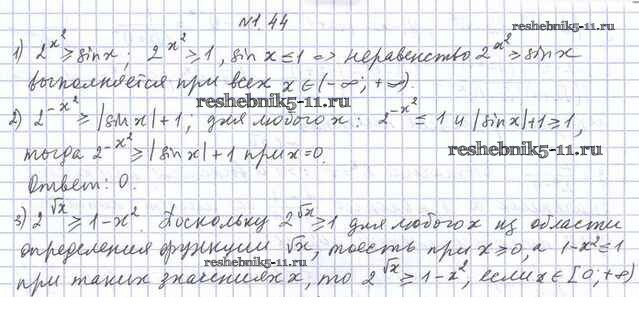 №1.44
reshebnik5-11.ru
1) 2^{x²} ≥ sin x; 2^{x²} ≥ 1, sin x ≤ 1 => неравенство 2^{x²} ≥ sin x
выполняется при всех x ∈ (-∞; +∞).
reshebnik5-11.ru
2) 2^{-x²} ≥ |sin x| + 1; для любого x: 2^{-x²} ≤ 1 и |sin x| + 1 ≥ 1,
тогда 2^{-x²} ≥ |sin x| + 1 при x = 0.
reshebnik5-11.ru
Ответ: 0.
3) 2^{√x} ≥ 1 - x². Поскольку 2^{√x} ≥ 1 для любого x из области
определения функции √x, тоесть при x ≥ 0, а 1 - x² ≤ 1
reshebnik5-11.ru
при таких значениях x, то 2^{√x} ≥ 1 - x², если x ∈ [0; +∞)